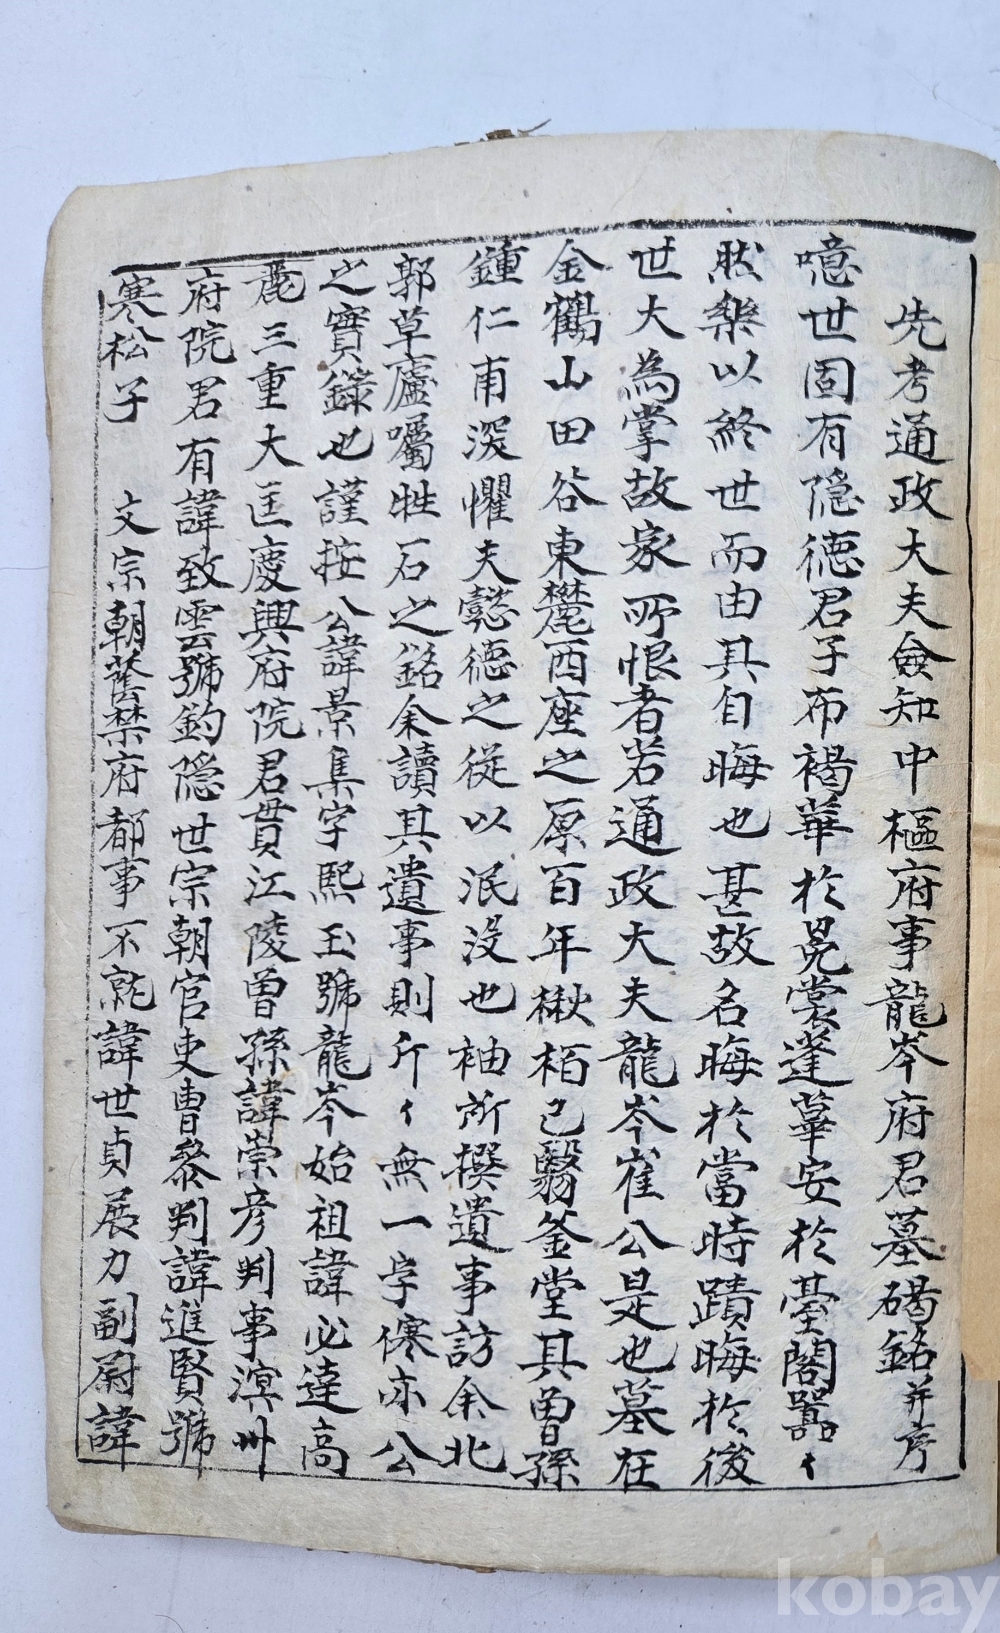 先考通政大夫僉知中樞府事龍岑府君墓碣銘并序
噫世固有隠德君子布褐華於冕裳蓬蓽安於臺閣嚣々
然樂以終世而由其自晦也甚故名晦於當時蹟晦於後
世大為掌故家所恨者若通政大夫龍岑崔公是也墓在
金鶴山田谷東麓酉座之原百年楸栢已翳釜堂其曽孫
鍾仁甫深懼夫懿德之從以泯没也袖所撰遺事訪余北
郭草廬囑牲石之銘余讀其遺事則斤々無一字僞亦公
之實錄也謹按公諱景集字熙玉號龍岑始祖諱必達高
麗三重大匡慶興府院君貫江陵曽孫諱崇彦判事溟州
府院君有諱致雲號釣隠世宗朝官吏曹叅判諱進賢號
寒松子 文宗朝蔭禁府都事不就諱世貞展力副尉諱
kobay